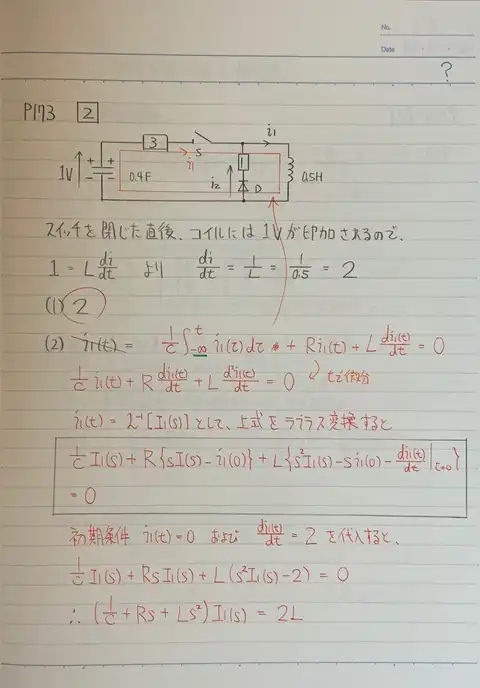 No.
Date
?
P173 2
3 S i₁
1V + + − − 0.4F i₁ i₂ 1 D 0.5H
スイッチを閉じた直後、コイルには1Vが印加されるので、
1 = L di/dt より di/dt = 1/L = 1/0.5 = 2
(1) 2
(2) i₁(t) = 1/C ∫_{-∞}^{t} i₁(τ)dτ + Ri₁(t) + L di₁(t)/dt = 0
1/C i₁(t) + R di₁(t)/dt + L d²i₁(t)/dt² = 0 tで微分
i₁(t) = ℒ⁻¹[I₁(s)] として、上式をラプラス変換すると
1/C I₁(s) + R{sI(s) − i₁(0)} + L{s²I₁(s) − si₁(0) − di₁(t)/dt |t=0}
= 0
初期条件 i₁(t) = 0 および di₁(t)/dt = 2 を代入すると、
1/C I₁(s) + RsI₁(s) + L(s²I₁(s) − 2) = 0
∴ (1/C + Rs + Ls²)I₁(s) = 2L